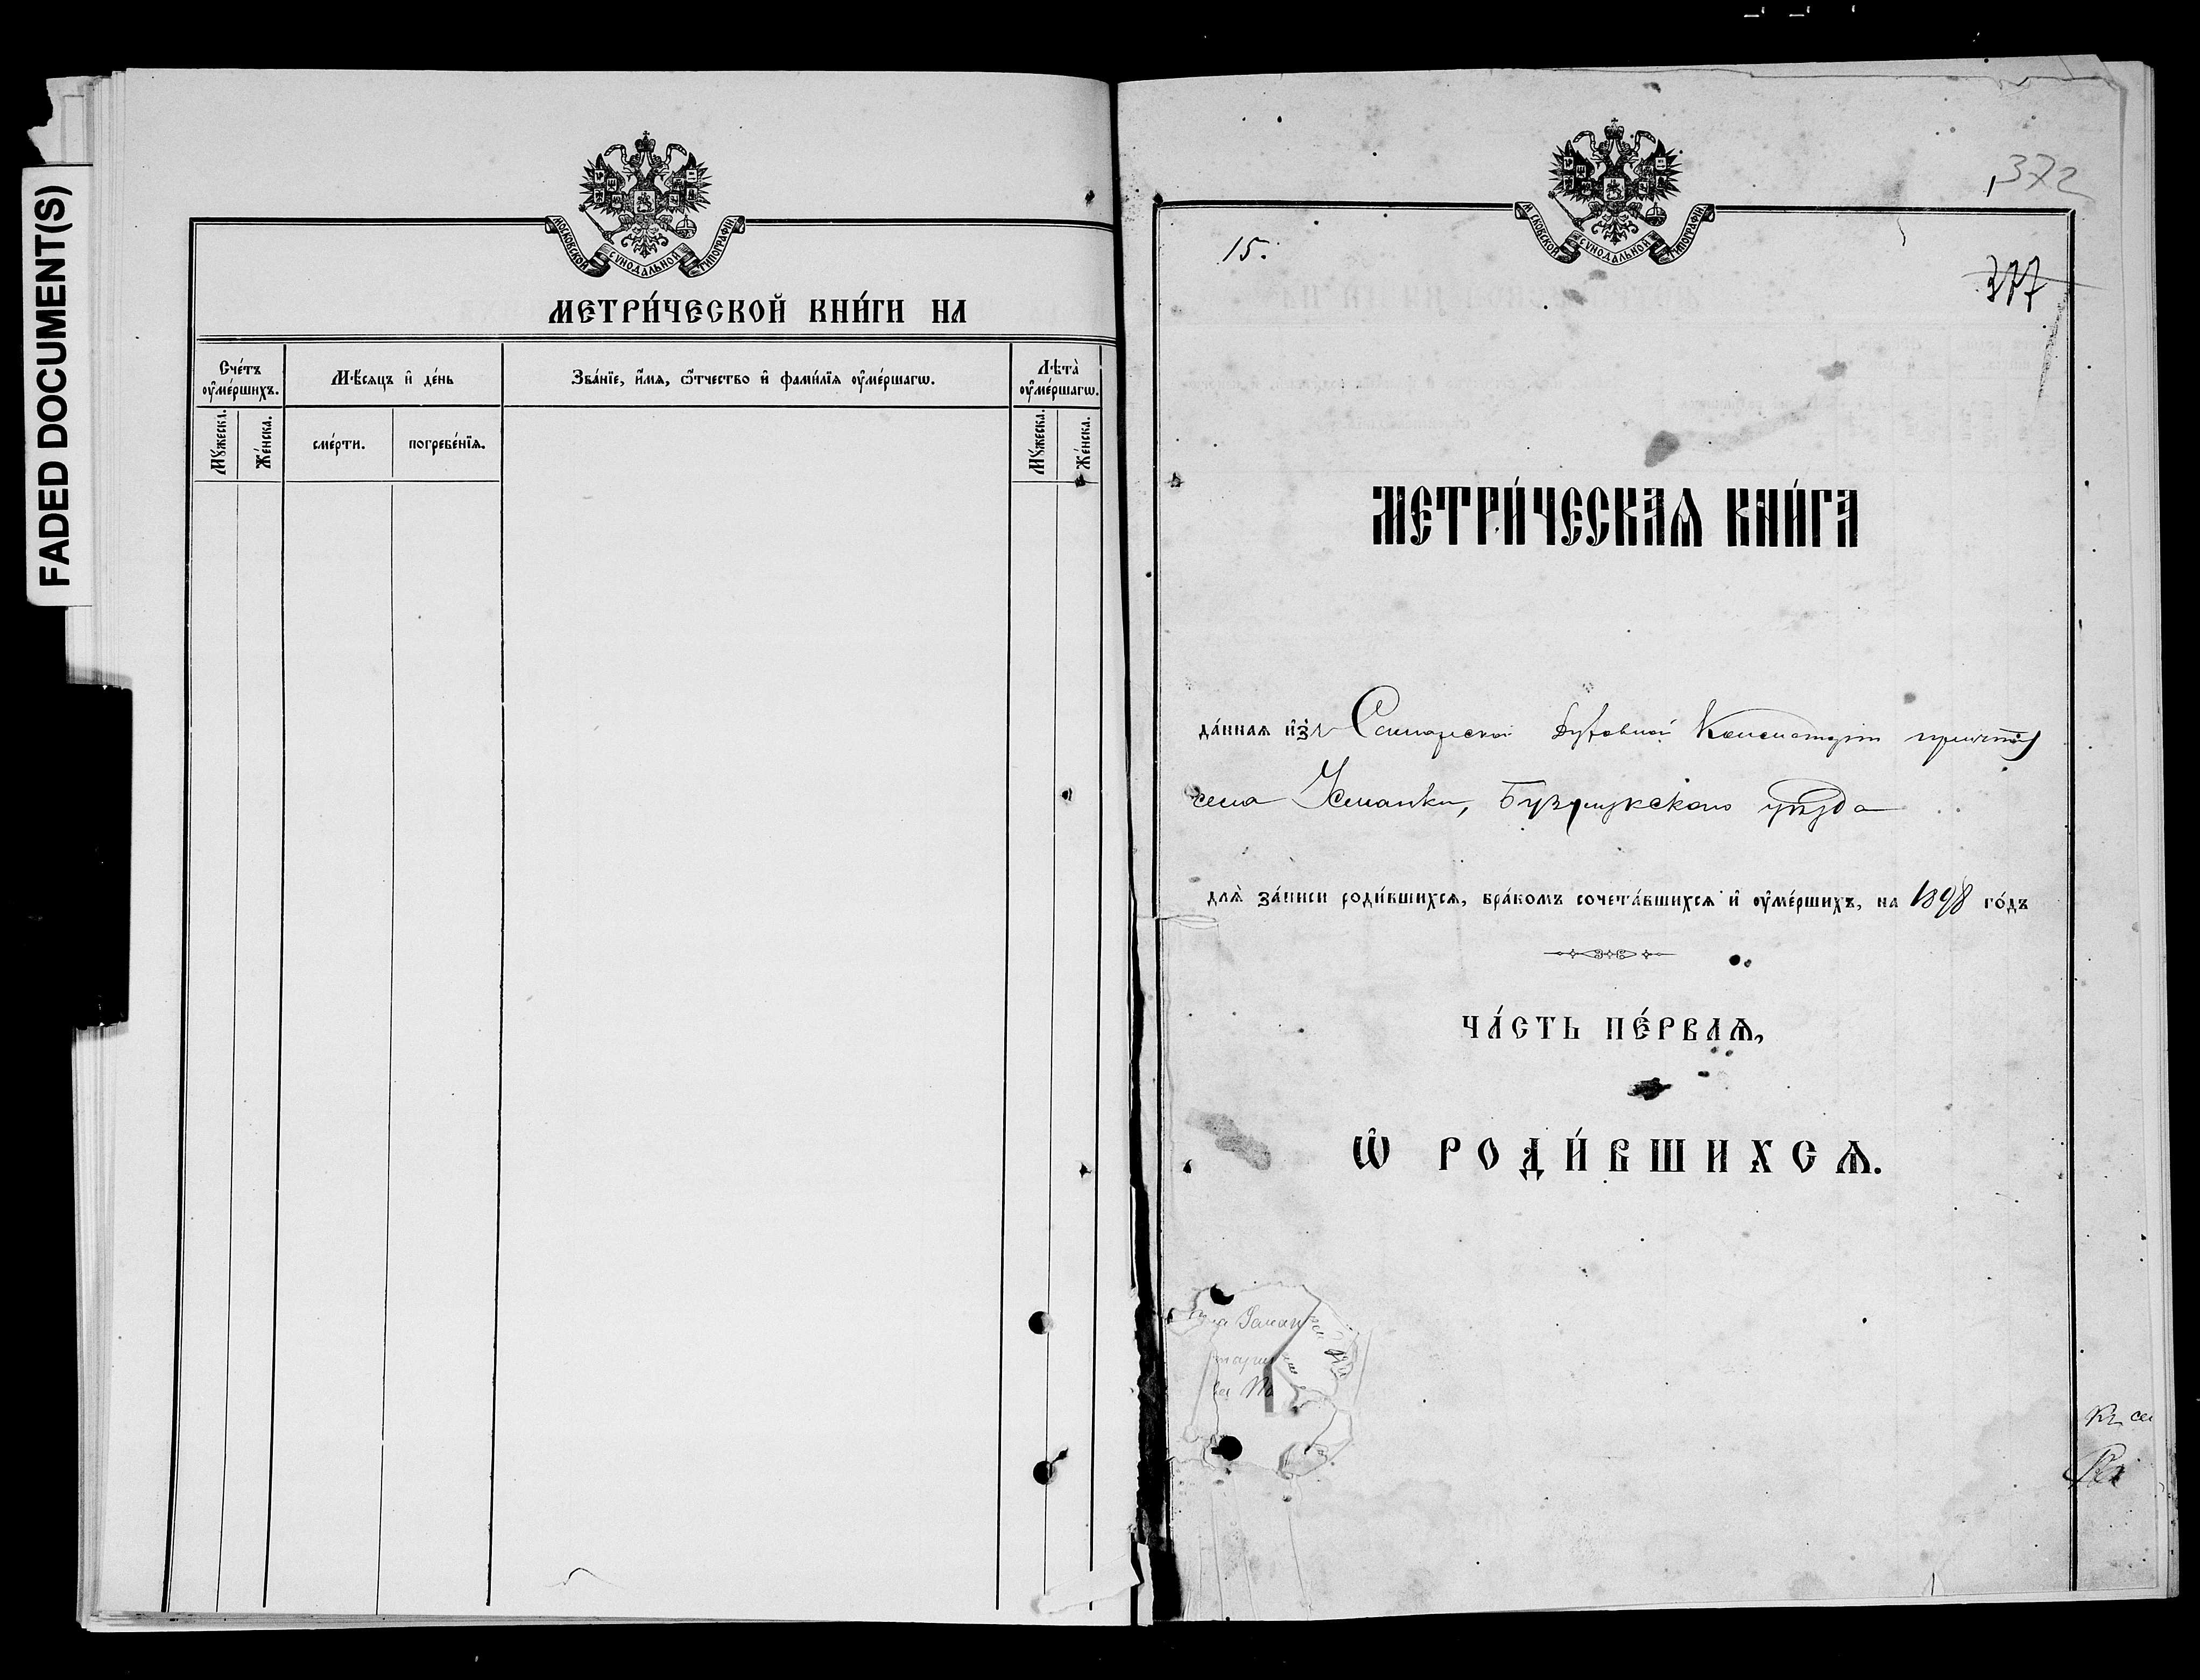 FADED DOCUMENT(S)
МОСКОВСКОЙ СѴНОДАЛЬНОЙ ТИПОГРАФІИ.
МЕТРИ́ЧЕСКОЙ КНИ́ГИ НА
Сче́тъ ᲂу҆ме́ршихъ.
Мѣ́сяцъ и҆ де́нь
Зва́нїе, и҆́мя, ѻ҆́тчество и҆ фами́лїя ᲂу҆ме́ршагѡ.
Лѣта̀ ᲂу҆ме́ршагѡ.
Мꙋ́жеска.
Же́нска.
сме́рти.
погребе́нїя.
Мꙋ́жеска.
Же́нска.
372
МОСКОВСКОЙ СѴНОДАЛЬНОЙ ТИПОГРАФІИ.
15.
377
МЕТРИ́ЧЕСКАѦ КНИ́ГА
да́нная и҆зъ Самарской Духовной Консисторіи причту
села Усманки, Бузулукскаго уѣзда
для̀ за́писи роди́вшихся, бра́комъ сочета́вшихся и҆ ᲂу҆ме́ршихъ, на 1898 го́дъ
ЧА́СТЬ ПЕ́РВАѦ,
Ѡ҆ РОДИ́ВШИХСѦ.